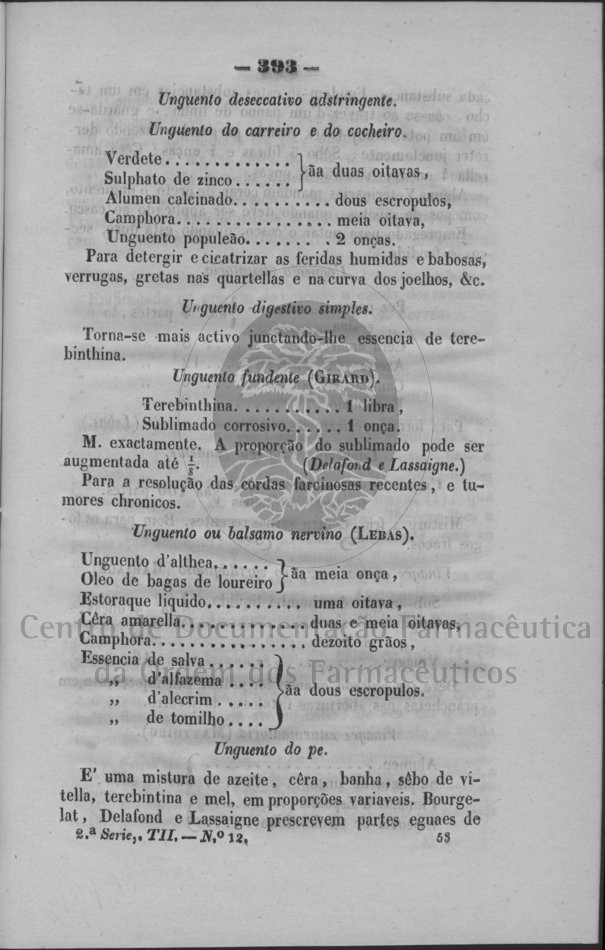 — 393 —
Unguento deseccativo adstringente.
Unguento do carreiro e do cocheiro.
Verdete . . . . . . . . . . . . . .
Sulphato de zinco . . . . . . } ãa duas oitavas,
Alumen calcinado. . . . . . . . . . dous escropulos,
Camphora. . . . . . . . . . . . . . . . . meia oitava,
Unguento populeão. . . . . . . . 2 onças.
Para detergir e cicatrizar as feridas humidas e babosas,
verrugas, gretas nas quartellas e na curva dos joelhos, &c.
Unguento digestivo simples.
Torna-se mais activo junctando-lhe essencia de tere-
binthina.
Unguento fundente (GIRARD).
Terebinthina. . . . . . . . . . . 1 libra,
Sublimado corrosivo. . . . . . 1 onça.
M. exactamente. A proporção do sublimado pode ser
augmentada até ⅛. (Delafond e Lassaigne.)
Para a resolução das cordas farcinosas recentes, e tu-
mores chronicos.
Unguento ou balsamo nervino (LEBAS).
Unguento d'althea. . . . . .
Oleo de bagas de loureiro } ãa meia onça,
Estoraque liquido. . . . . . . . . . uma oitava,
Cêra amarella. . . . . . . . . . . . . duas e meia oitavas,
Camphora. . . . . . . . . . . . . . . . dezoito grãos,
Essencia de salva . . . . . .
„ d'alfazema . . . .
„ d'alecrim . . . . . } ãa dous escropulos.
„ de tomilho . . . .
Unguento do pe.
E' uma mistura de azeite, cêra, banha, sêbo de vi-
tella, terebintina e mel, em proporções variaveis. Bourge-
lat, Delafond e Lassaigne prescrevem partes eguaes de
2.ª Serie,. TII. — N.º 12. 53
Centro de Documentação Farmacêutica
da Ordem dos Farmacêuticos